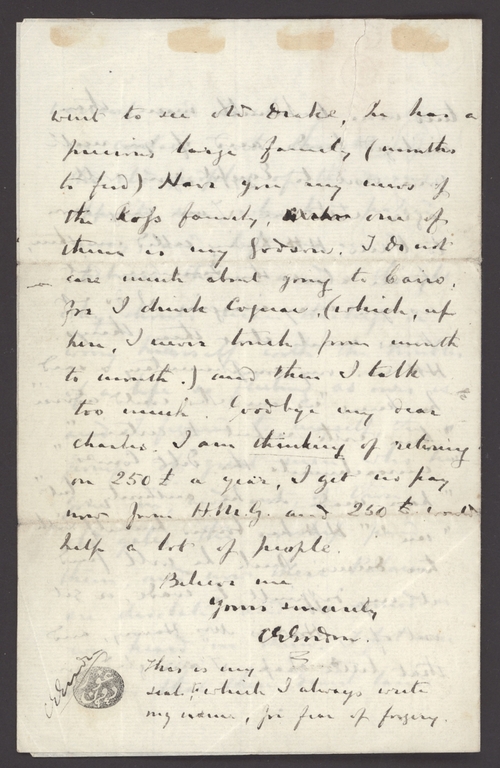 went to see old Drake, he has a
precious large family, (mouths
to feed) Have you any news of
the Ross family, one of
them is my Godson. I do not
care much about going to Cairo,
for I drink Cognac, (which, up
here, I never touch from month
to month.) and then I talk
too much. Goodbye my dear
Charles. I am thinking of retiring
on 250 £ a year, I get no pay
now from H.M.G. and 250 £ would
help a lot of people.
Believe me
Yours sincerely
CGGordon.
This is my
seal, which I always write
my name, for fear of forgery.